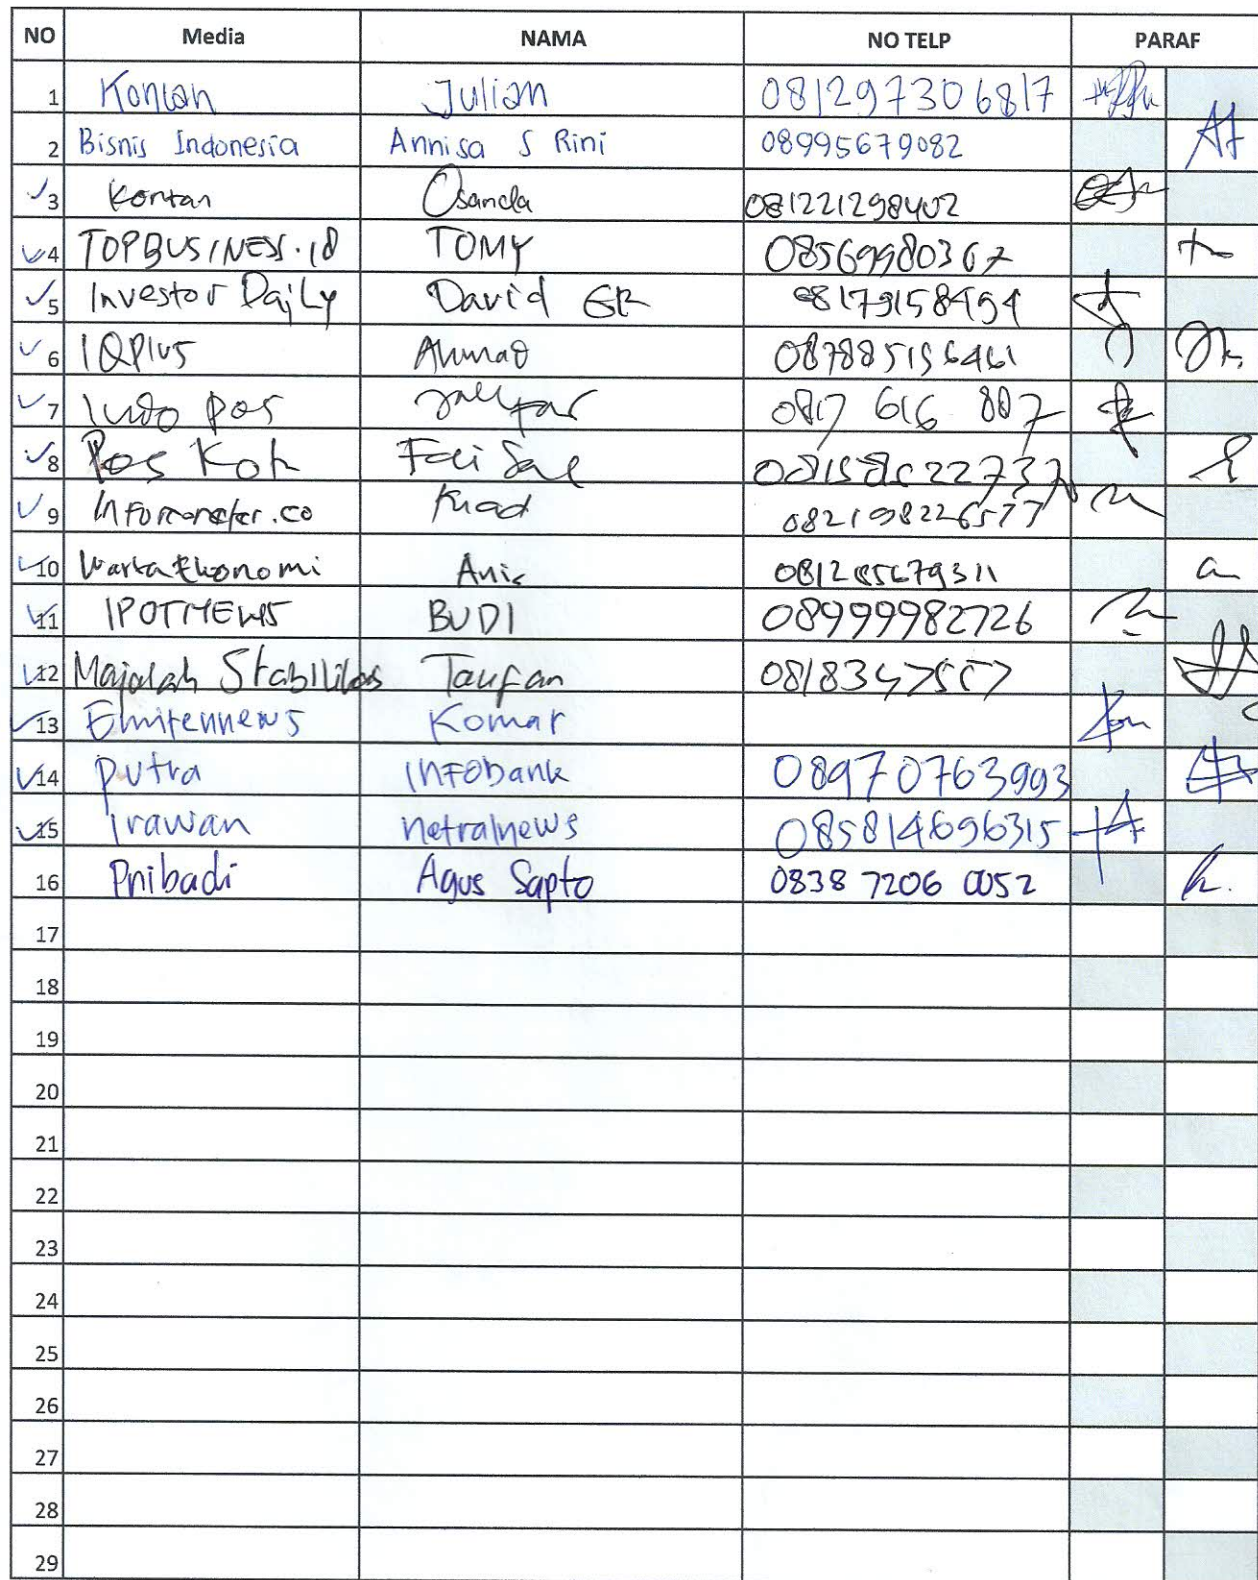 NO Media NAMA NO TELP PARAF
1 Kontan Julian 081297306817
2 Bisnis Indonesia Annisa S Rini 08995679082
3 Kontan Osanda 081221298402
4 TOPBUSINESS.id TOMY 08569980367
5 Investor Daily David GR 08179158454
6 IQPlus Ahmad
7 Indo pos 0817 616 807
8 Pos Kota Faisal
9 
10 Warta Ekonomi Anis
11 IPOTNEWS BUDI 08999982726
12 Majalah Stabilitas Taufan
13 Emitennews Komar
14 putra INFObank 08970763993
15 Irawan netralnews 085814696315
16 Pribadi Agus Sapto 0838 7206 0052
17
18
19
20
21
22
23
24
25
26
27
28
29